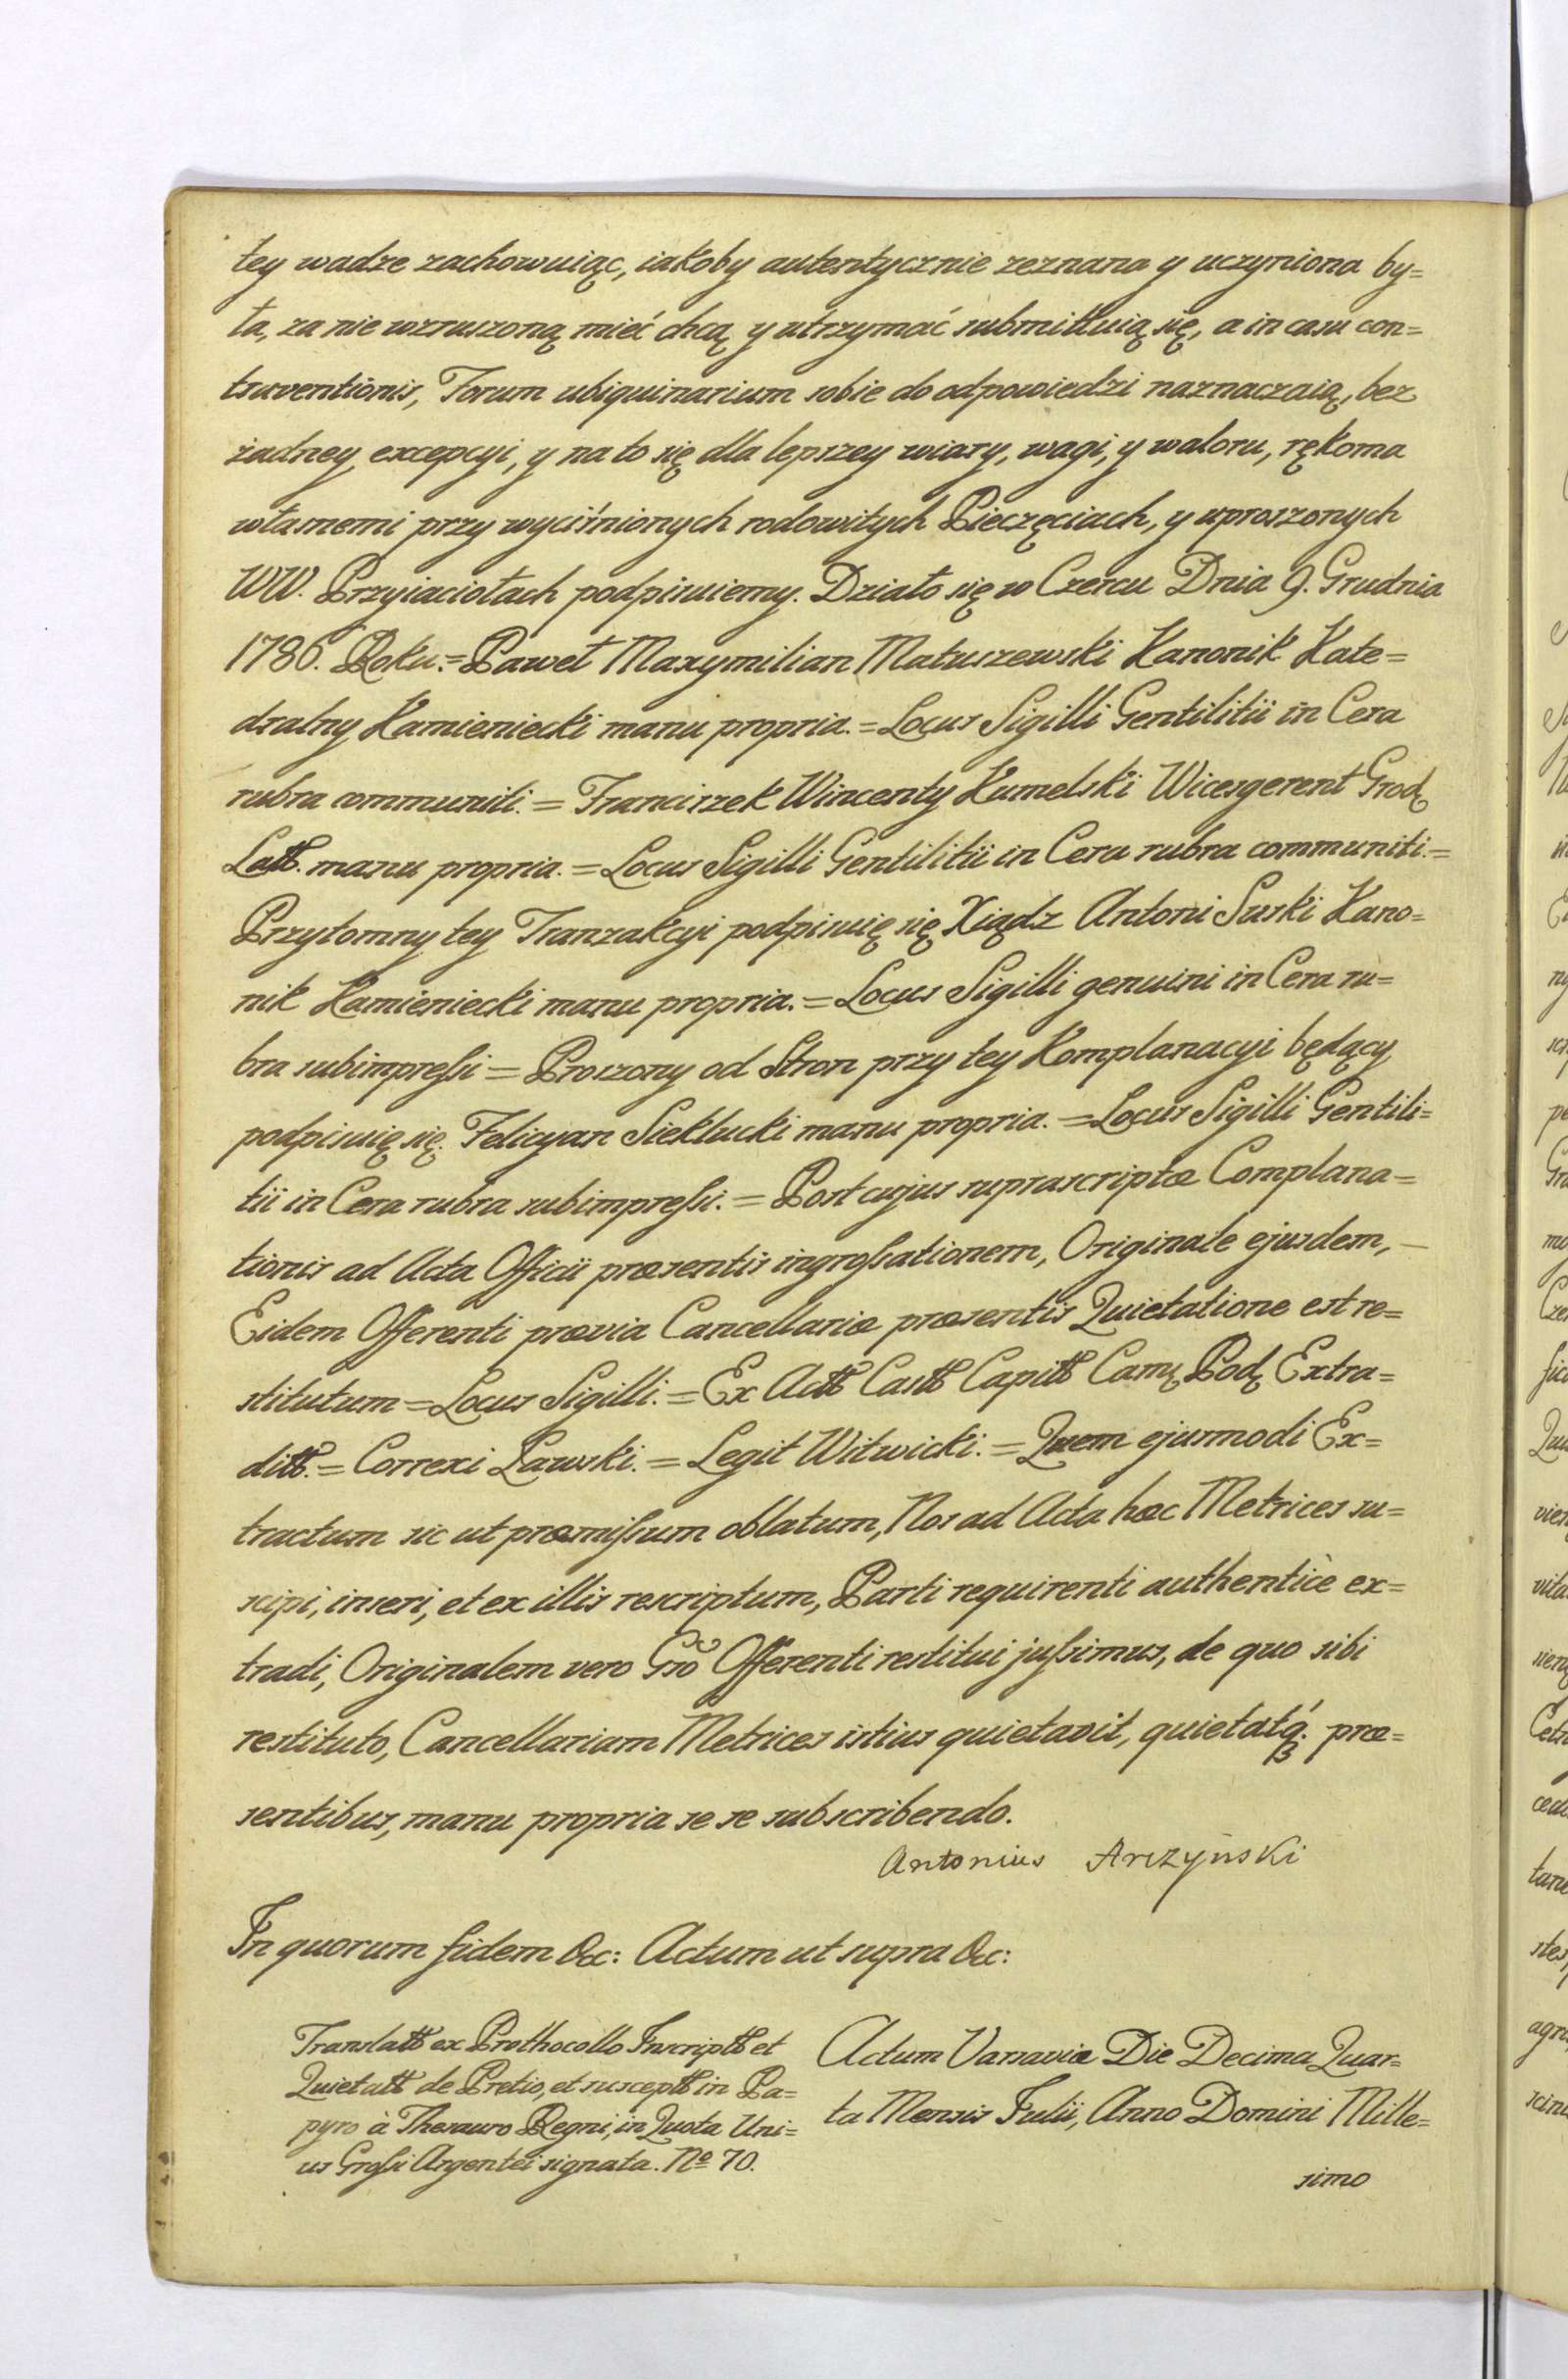 tey wadze zachowuiąc, iakoby autentycznie zeznana y uczyniona by=
ła, za nie wzruszoną mieć chcą y utrzymać submittuią się, a in casu con=
traventionis, Forum ubiquinarium sobie do odpowiedzi naznaczaią, bez
żadney excepcyi, y na to się dla lepszey wiary, wagi, y waloru, rękoma
własnemi przy wyciśnionych rodowitych Pieczęciach, y uproszonych
WW. Przyiaciołach podpisuiemy. Działo się w Czercu Dnia 9. Grudnia
1786. Roku.= Paweł Maxymilian Matuszewski Kanonik Kate=
dralny Kamieniecki manu propria.= Locus Sigilli Gentilitii in Cera
rubra communiti.= Franciszek Wincenty Kumelski Wicesgerent Grod
Latt. manu propria.= Locus Sigilli Gentilitii in Cera rubra communiti.=
Przytomny tey Tranzakcyi podpisuię się Xiądz Antoni Suski Kano=
nik Kamieniecki manu propria.= Locus Sigilli genuini in Cera ru=
bra subimpressi = Proszony od Stron przy tey Komplanacyi będący
podpisuię się. Felicyan Sieklucki manu propria.= Locus Sigilli Gentili=
tii in Cera rubra subimpressi.= Post cujus suprascriptæ Complana=
tionis ad Acta Officii præsentis ingrossationem, Originale ejusdem,
Eidem Offerenti prævia Cancellariæ præsentis Quietatione est re=
stitutum = Locus Sigilli.= Ex Actt Castt Capitt Cam Pod Extra=
ditt.= Correxi Ławski.= Legit Witwicki.= Quem ejusmodi Ex=
tractum sic ut præmissum oblatum, Nos ad Acta hæc Metrices su=
scipi, inseri, et ex illis rescriptum, Parti requirenti authenticè ex=
tradi, Originalem vero Gro Offerenti restitui jussimus, de quo sibi
restituto, Cancellariam Metrices istius quietavit, quietatq́. præ=
sentibus, manu propria se se subscribendo.
Antonius Arczyński
In quorum fidem &c: Actum ut supra &c:
Translatt ex Prothocollo Inscriptt et
Quietatt de Pretio, et susceptt in Pa=
pyro à Thesauro Regni, in Quota Uni=
us Grossi Argentei signata. No 70.
Actum Varsaviæ Die Decima Quar=
ta Mensis Julii, Anno Domini Mille=
simo